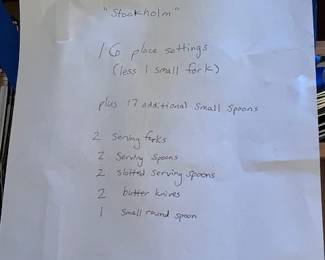 "Stockholm"
16 place settings
(less 1 small fork)
plus 17 additional small spoons
2 serving forks
2 serving spoons
2 slotted serving spoons
2 butter knives
1 small round spoon